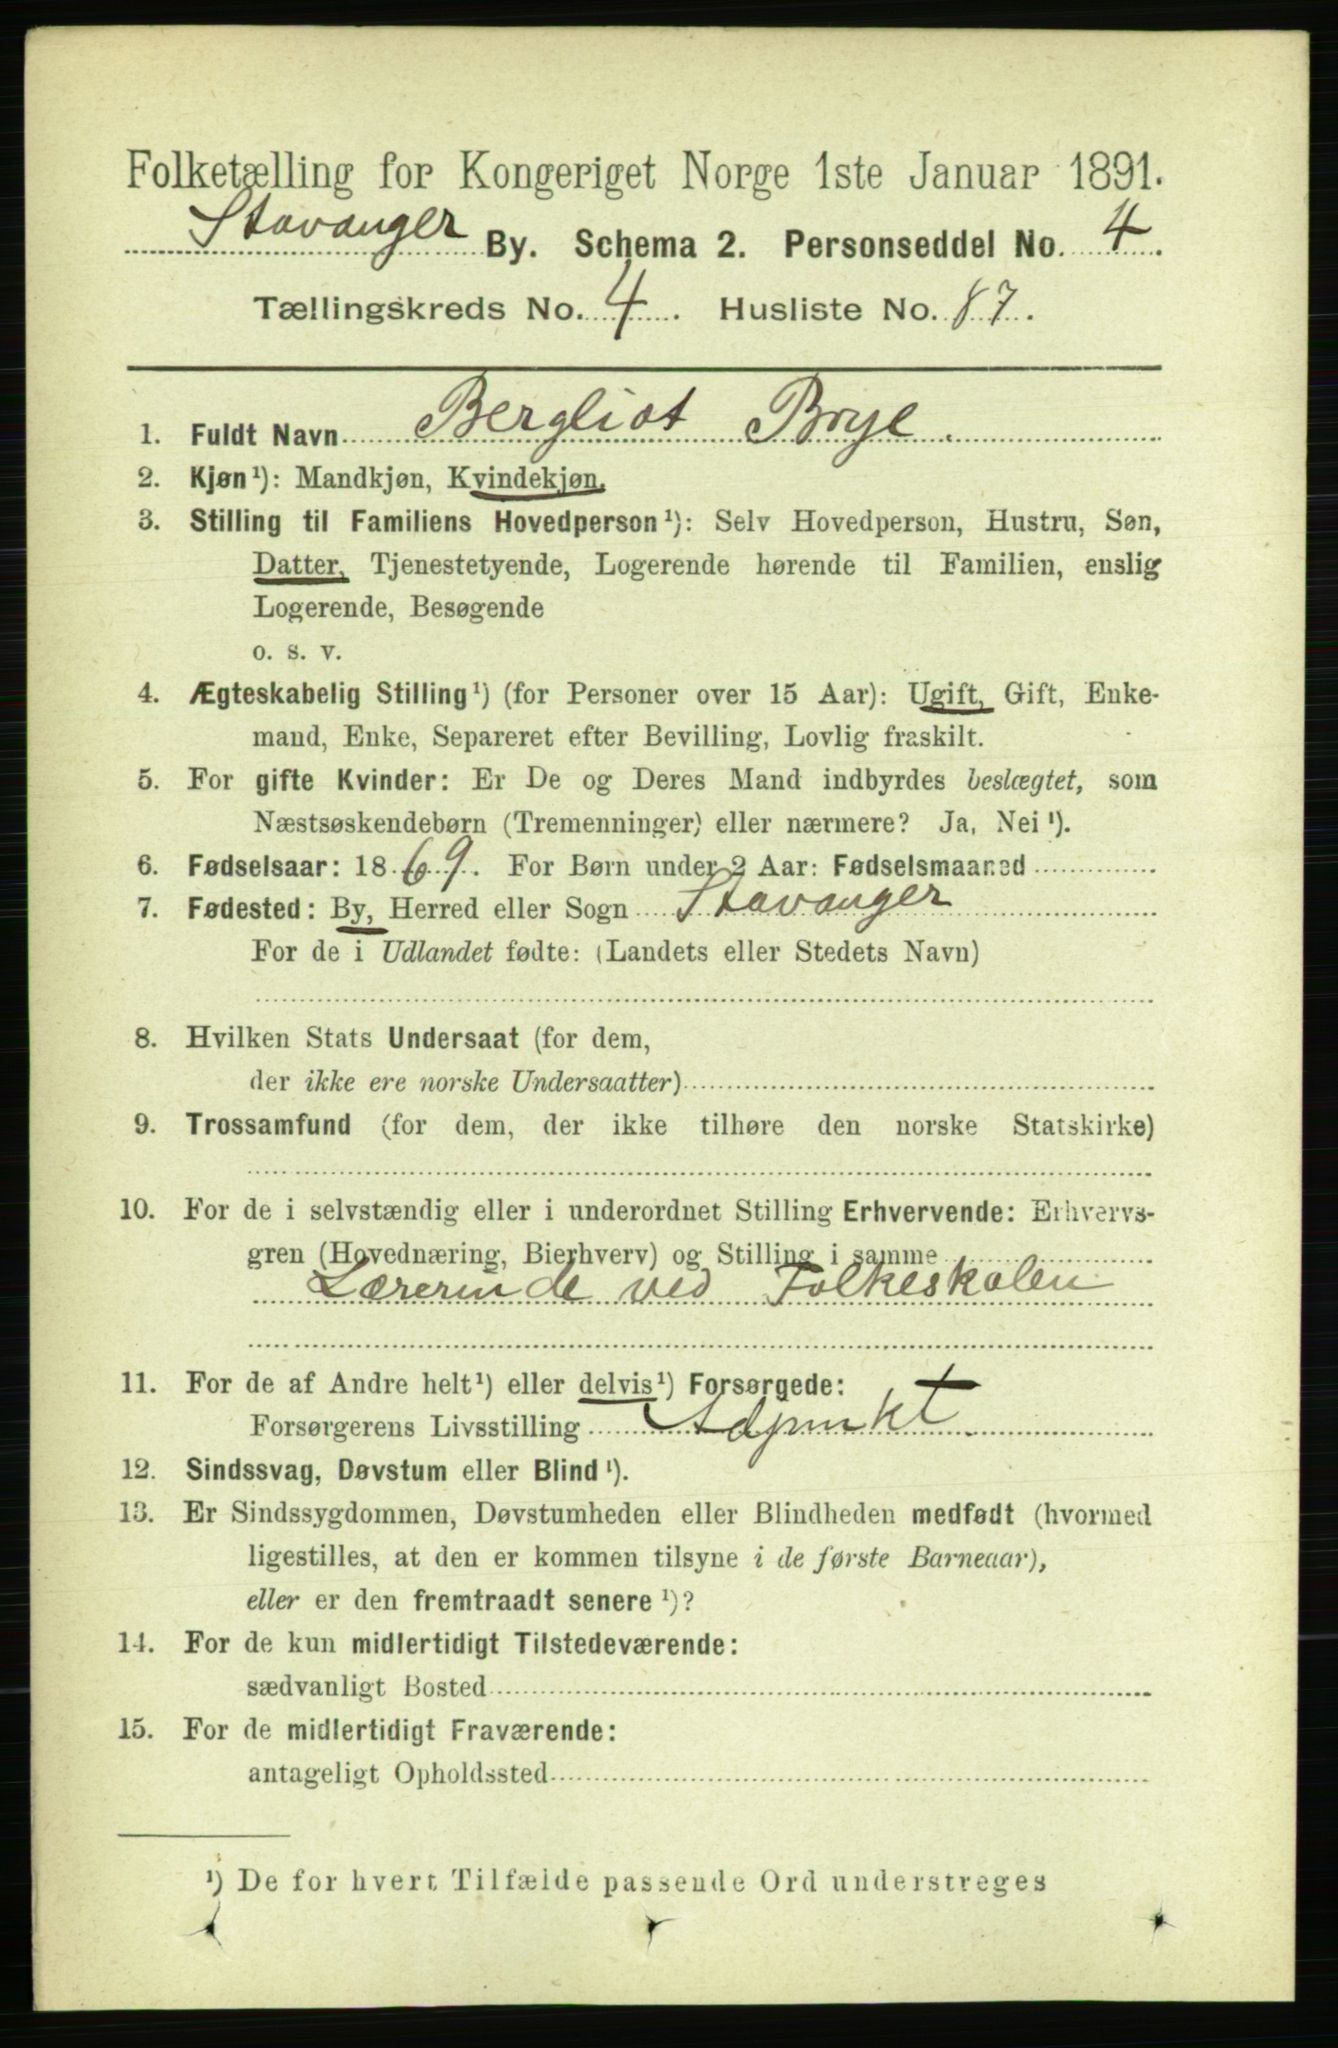 Folketælling for Kongeriget Norge 1ste Januar 1891.
Stavanger By. Schema 2. Personseddel No. 4.
Tællingskreds No. 4. Husliste No. 87.
1. Fuldt Navn Bergliot Brye.
2. Kjøn¹): Mandkjøn, Kvindekjøn.
3. Stilling til Familiens Hovedperson¹): Selv Hovedperson, Hustru, Søn,
Datter, Tjenestetyende, Logerende hørende til Familien, enslig
Logerende, Besøgende
o. s. v.
4. Ægteskabelig Stilling¹) (for Personer over 15 Aar): Ugift, Gift, Enke-
mand, Enke, Separeret efter Bevilling, Lovlig fraskilt.
5. For gifte Kvinder: Er De og Deres Mand indbyrdes beslægtet, som
Næstsøskendebørn (Tremenninger) eller nærmere? Ja, Nei¹).
6. Fødselsaar: 1869. For Børn under 2 Aar: Fødselsmaaned
7. Fødested: By, Herred eller Sogn Stavanger
For de i Udlandet fødte: (Landets eller Stedets Navn)
8. Hvilken Stats Undersaat (for dem,
der ikke ere norske Undersaatter)
9. Trossamfund (for dem, der ikke tilhøre den norske Statskirke)
10. For de i selvstændig eller i underordnet Stilling Erhvervende: Erhvervs-
gren (Hovednæring, Bierhverv) og Stilling i samme
Lærerinde ved Folkeskolen
11. For de af Andre helt¹) eller delvis¹) Forsørgede:
Forsørgerens Livsstilling Adjunkt.
12. Sindssvag, Døvstum eller Blind¹).
13. Er Sindssygdommen, Døvstumheden eller Blindheden medfødt (hvormed
ligestilles, at den er kommen tilsyne i de første Barneaar),
eller er den fremtraadt senere¹)?
14. For de kun midlertidigt Tilstedeværende:
sædvanligt Bosted
15. For de midlertidigt Fraværende:
antageligt Opholdssted
¹) De for hvert Tilfælde passende Ord understreges